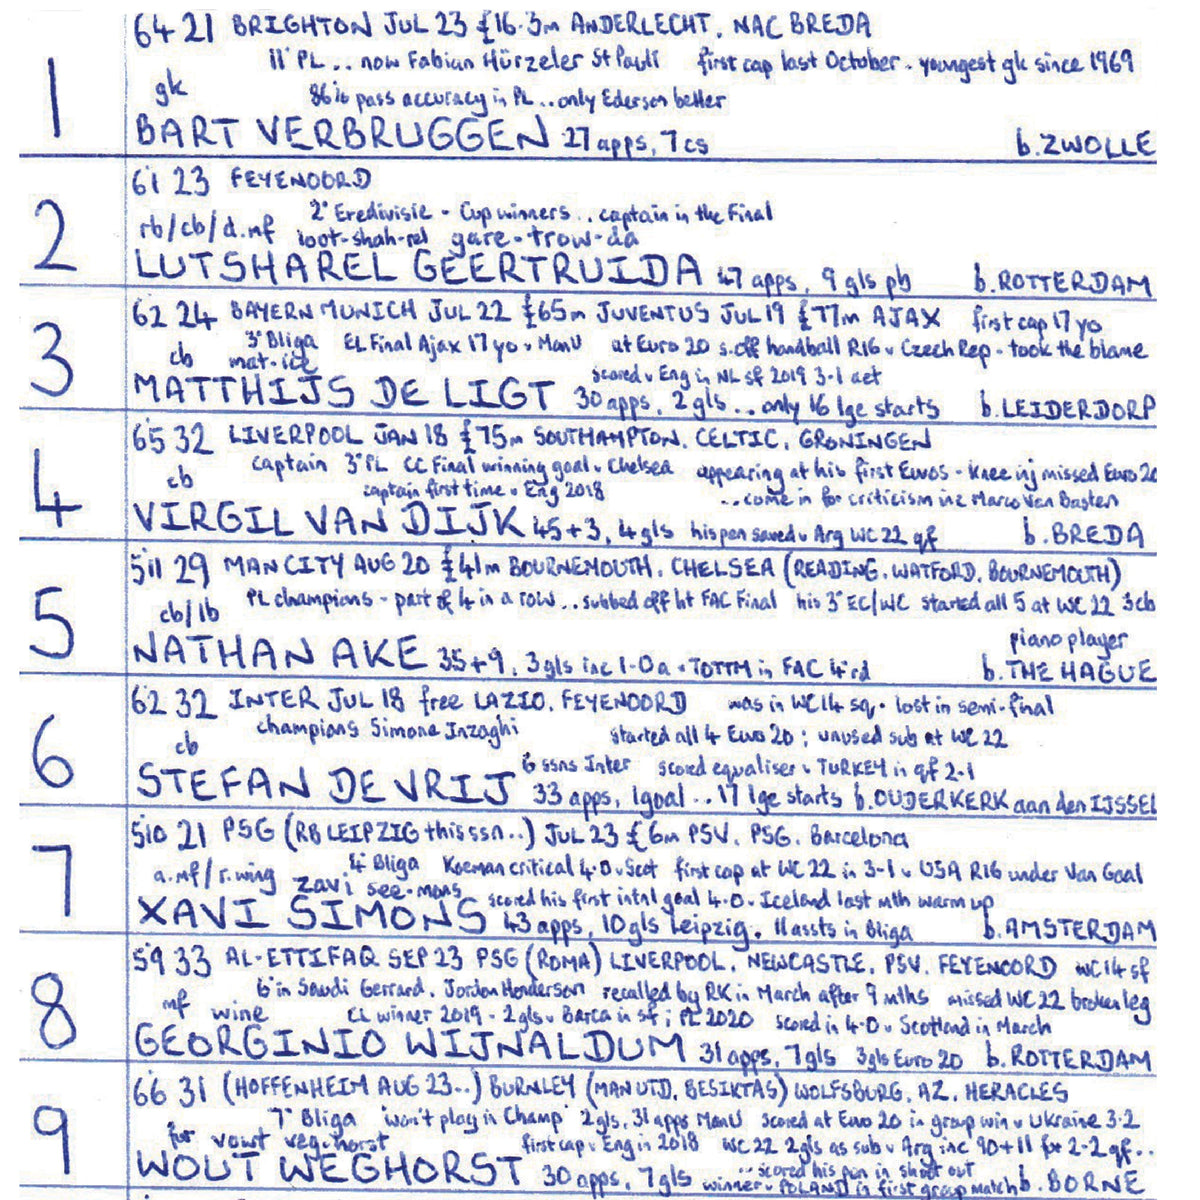 1
6'4 21 BRIGHTON JUL 23 £16.3m ANDERLECHT, NAC BREDA
11° PL .. now Fabian Hürzeler St Pauli first cap last October - youngest gk since 1969
gk
86% pass accuracy in PL .. only Ederson better
BART VERBRUGGEN 27 apps, 7 cs b. ZWOLLE
2
6'1 23 FEYENOORD
2° Eredivisie - Cup winners .. captain in the Final
rb/cb/d.mf loot-shah-rel gare-trow-da
LUTSHAREL GEERTRUIDA 47 apps, 9 gls pb b. ROTTERDAM
3
6'2 24 BAYERN MUNICH JUL 22 £65m JUVENTUS JUL 19 £77m AJAX first cap 17 yo
3° Bliga EL Final Ajax 17 yo v Man U at Euro 20 s.off handball R16 v Czech Rep - took the blame
cb mat-ice
scored v Eng in NL sf 2019 3-1 aet
MATTHIJS DE LIGT 30 apps, 2 gls .. only 16 lge starts b. LEIDERDORP
4
6'5 32 LIVERPOOL JAN 18 £75m SOUTHAMPTON, CELTIC, GRONINGEN
captain 3° PL CC Final winning goal v Chelsea appearing at his first Euros - knee inj missed Euro 20
cb
captain first time v Eng 2018 .. come in for criticism inc Marco Van Basten
VIRGIL VAN DIJK 45+3, 4 gls his pen saved v Arg WC 22 qf b. BREDA
5
5'11 29 MAN CITY AUG 20 £41m BOURNEMOUTH, CHELSEA (READING, WATFORD, BOURNEMOUTH)
PL champions - part of 4 in a row .. subbed off ht FAC Final his 3° EC/WC started all 5 at WC 22 3cb
cb/lb
piano player
NATHAN AKE 35+9, 3 gls inc 1-0 a v TOTTM in FAC 4'rd b. THE HAGUE
6
6'2 32 INTER JUL 18 free LAZIO, FEYENOORD was in WC14 sq - lost in semi-final
champions Simone Inzaghi started all 4 Euro 20 ; unused sub at WC 22
cb
6 ssns Inter scored equaliser v TURKEY in qf 2-1
STEFAN DE VRIJ 33 apps, 1 goal .. 17 lge starts b. OUDERKERK aan den IJSSEL
7
5'10 21 PSG (RB LEIPZIG this ssn ..) JUL 23 £6m PSV, PSG, Barcelona
4° Bliga Koeman critical 4-0 v Scot first cap at WC 22 in 3-1 v USA R16 under Van Gaal
a.mf/r.wing zavi see-mons
scored his first intnl goal 4-0 v Iceland last mth warm up
XAVI SIMONS 43 apps, 10 gls Leipzig, 11 assts in Bliga b. AMSTERDAM
8
5'9 33 AL-ETTIFAQ SEP 23 PSG (ROMA) LIVERPOOL, NEWCASTLE, PSV, FEYENOORD WC14 sf
6° in Saudi Gerrard, Jordan Henderson recalled by RK in March after 9 mths missed WC 22 broken leg
mf wine
CL winner 2019 - 2 gls v Barca in sf ; PL 2020 scored in 4-0 v Scotland in March
GEORGINIO WIJNALDUM 31 apps, 7 gls 3 gls Euro 20 b. ROTTERDAM
9
6'6 31 (HOFFENHEIM AUG 23 ..) BURNLEY (MAN UTD, BESIKTAS) WOLFSBURG, AZ, HERACLES
7° Bliga 'won't play in Champ' 2 gls, 31 apps Man U scored at Euro 20 in group win v Ukraine 3-2
for vowt veg-horst
first cap v Eng in 2018 WC 22 2 gls as sub v Arg inc 90+11 for 2-2 qf ..
.. scored his pen in shoot out
WOUT WEGHORST 30 apps, 7 gls winner v POLAND in first group match b. BORNE